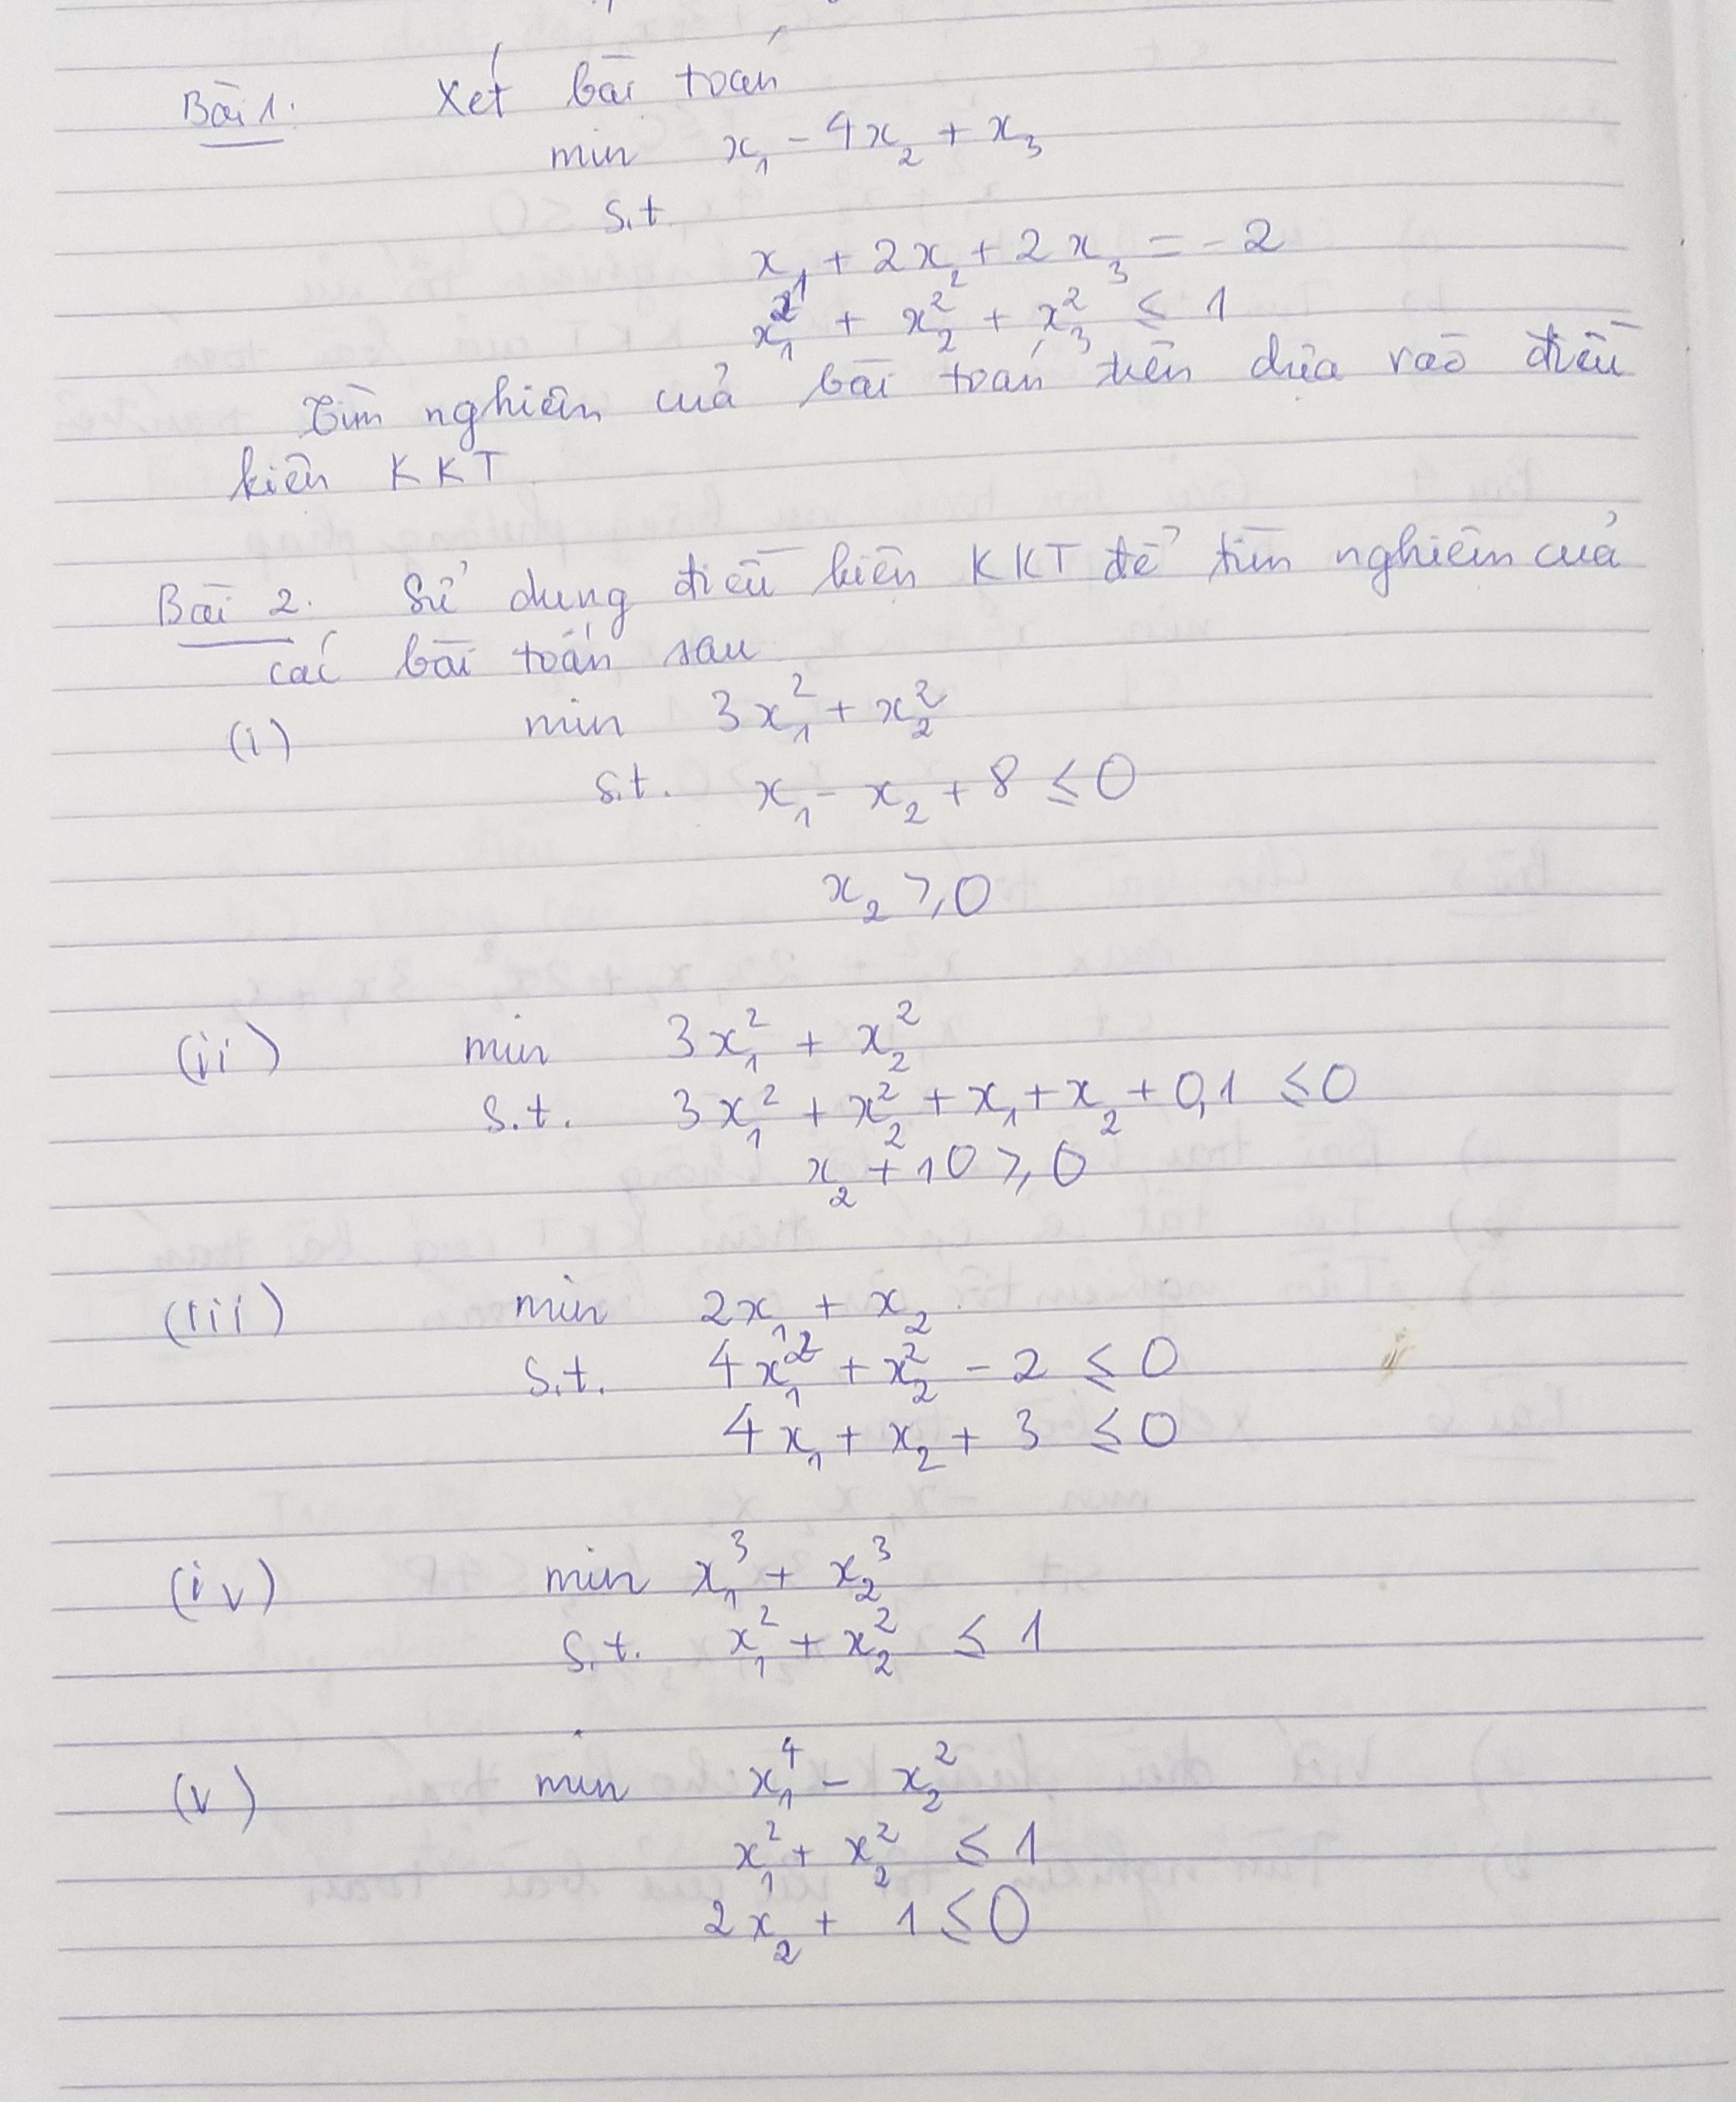 Bài 1. Xét bài toán
min x₁ - 4x₂ + x₃
s.t.
x₁ + 2x₂ + 2x₃ = -2
x₁² + x₂² + x₃² ≤ 1
Tìm nghiệm của bài toán trên dựa vào điều
kiện KKT
Bài 2. Sử dụng điều kiện KKT để tìm nghiệm của
các bài toán sau
(i) min 3x₁² + x₂²
s.t. x₁ - x₂ + 8 ≤ 0
x₂ ≥ 0
(ii) min 3x₁² + x₂²
s.t. 3x₁² + x₂² + x₁ + x₂ + 0,1 ≤ 0
x₂ + 10 ≥ 0
(iii) min 2x₁ + x₂
s.t. 4x₁² + x₂² - 2 ≤ 0
4x₁ + x₂ + 3 ≤ 0
(iv) min x₁³ + x₂³
s.t. x₁² + x₂² ≤ 1
(v) min x₁⁴ - x₂²
x₁² + x₂² ≤ 1
2x₂ + 1 ≤ 0